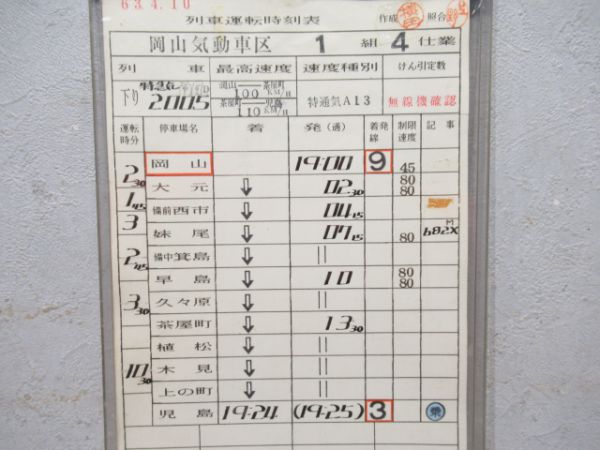 63.4.10
列車運転時刻表 作成 照合
岡山気動車区 1 組 4 仕業
列 車 最高速度 速度種別 けん引定数
下り 特急 2005D 岡山—茶屋町 100KM/H 茶屋町—児島 110KM/H 特通気A13 無線機確認
運転時分 停車場名 着 発(通) 着発線 制限速度 記事
岡山 19:00 9 45
2 30 大元 ⇩ 02 30 80 80
1 45 備前西市 ⇩ 04 15
3 妹尾 ⇩ 07 15 80 682XM
2 45 備中箕島 ⇩ ||
早島 ⇩ 10 80 80
3 30 久々原 ⇩ ||
茶屋町 ⇩ 13 30
植松 ⇩ ||
10 30 木見 ⇩ ||
上の町 ⇩ ||
児島 19:24 (19:25) 3 乗